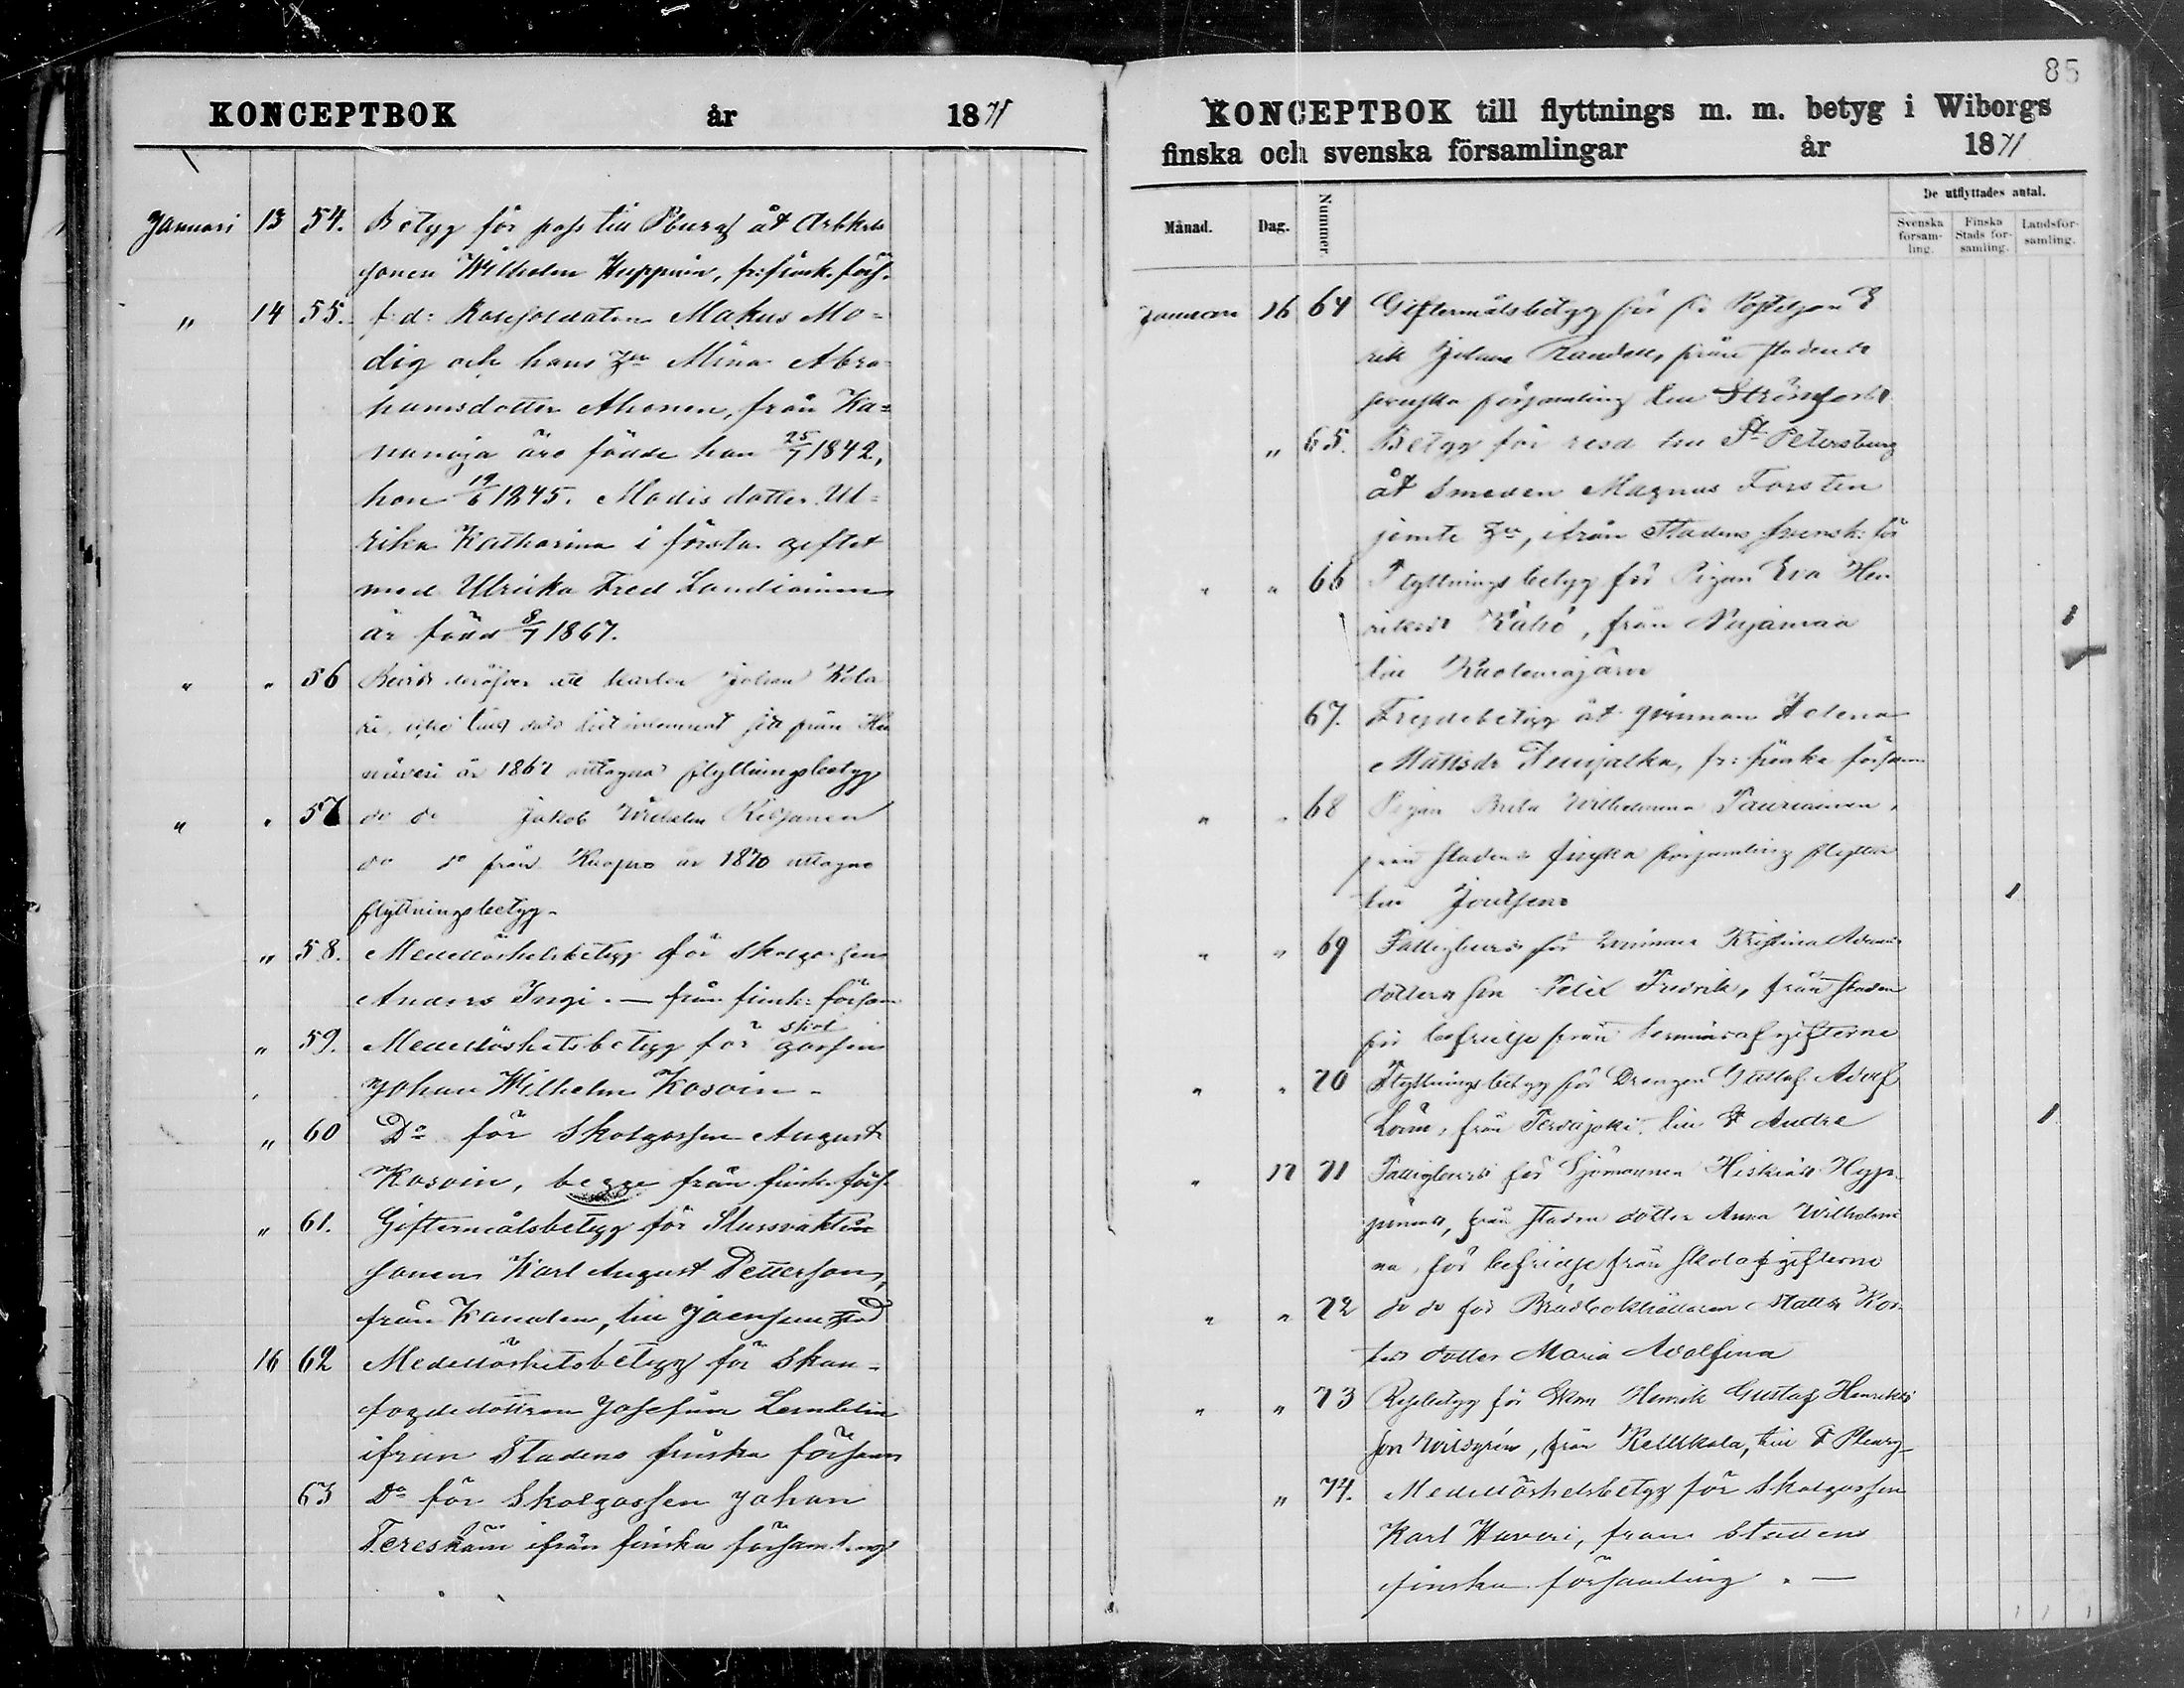 85
KONCEPTBOK år 1871
Januari 13 54. Betyg för pass till Pburg åt Arbkls
sonen Wilhelm Huppoin, fr: finsk. förs.
" 14 55. f. d: Rotesoldaten Makus Mo=
dig och hans Mina Abra-
hamsdotter Ahonen, från Ka=
nanoja äro födde han 25/7 1842,
hon 19/6 1845. Modis dotter Ul=
rika Katharina i första giftet
med Ulrika Fred Landiainen
är född 8/7 1867.
" " 56 att karlen Johan
från
år 1867 uttagna flyttningsbetyg
" " 57 do do Jakob Wilhelm Kiljanen
do do från Kuopio år 1870 uttagne
flyttningsbetyg.
" 58. Medellöshetsbetyg för Skolgossen
Anders Ingi. — från finsk: försam
" 59. Medellöshetsbetyg för skol gossen
Johan Wilhelm Kosoin.
" 60 Do för Skolgossen August
Kosoin, begge från finsk. förs.
" 61. Giftermålsbetyg för Slussvaktm
sonen Karl August Petterson,
från Kanalen, till Joensuu stad
16 62 Medellöshetsbetyg för Skan-
fogdedottren Josefina Lemblin
ifrån Stadens finska församl
63 Do för Skolgossen Johan
Tereskäin ifrån finska församling
KONCEPTBOK till flyttnings m. m. betyg i Wiborgs
finska och svenska församlingar år 1871
Månad. Dag. Nummer De utflyttades antal.
Svenska församling. Finska Stads församling. Landsförsamling.
Januari 16 64 Giftermålsbetyg för fd Postiljon E
rik Johan Randell, från stadens
svenska församling till Strömfors
" 65. Betyg för resa till St Petersburg
åt Smeden Magnus Forsten
jemte, ifrån Stadens svensk: för
" " 66 Flyttningsbetyg för Pigan Eva Hen
riksdr Kähö, från Nuijamaa
till Kuolemajärvi 1
67. Frejdebetyg åt qvinnan Helena
Mattsdr, fr: finska försam
" " 68 Pigan Brita Wilhelmina Tauriainen,
från stadens finska församling flyttar
till Joutseno 1
" " 69 Fattigbevis för qvinnan Kristina Adams
dotters son Felix Fredrik, från staden
för befrielse från terminsafgifterne
" " 70 Flyttningsbetyg för Drängen Gustaf Adolf
, från Tervajoki till St Andre 1
" 17 71 Fattigbevis för Sjömannen Hiskias Hyp-
, från staden dotter Anna Wilhelmi
na, för befrielse från skolafgifterne
" " 72 do do för Matts
dotter Maria Adolfina
" " 73 Resbetyg för Henrik Gustaf Henriks
son, från, till St Pburg
" 74. Medellöshetsbetyg för Skolgossen
Karl Haveri, från Stadens
finska församling. —